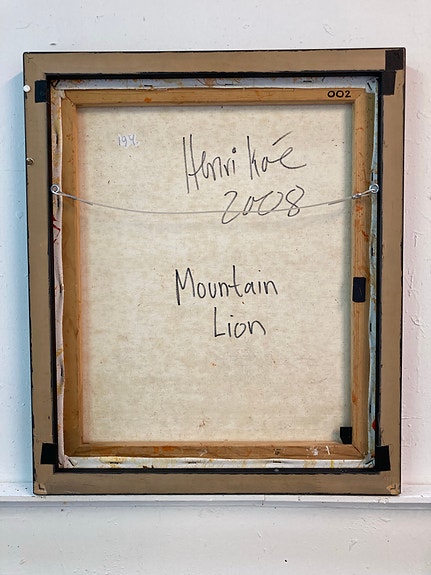 002
194
Henri Kóe
2008
Mountain
Lion